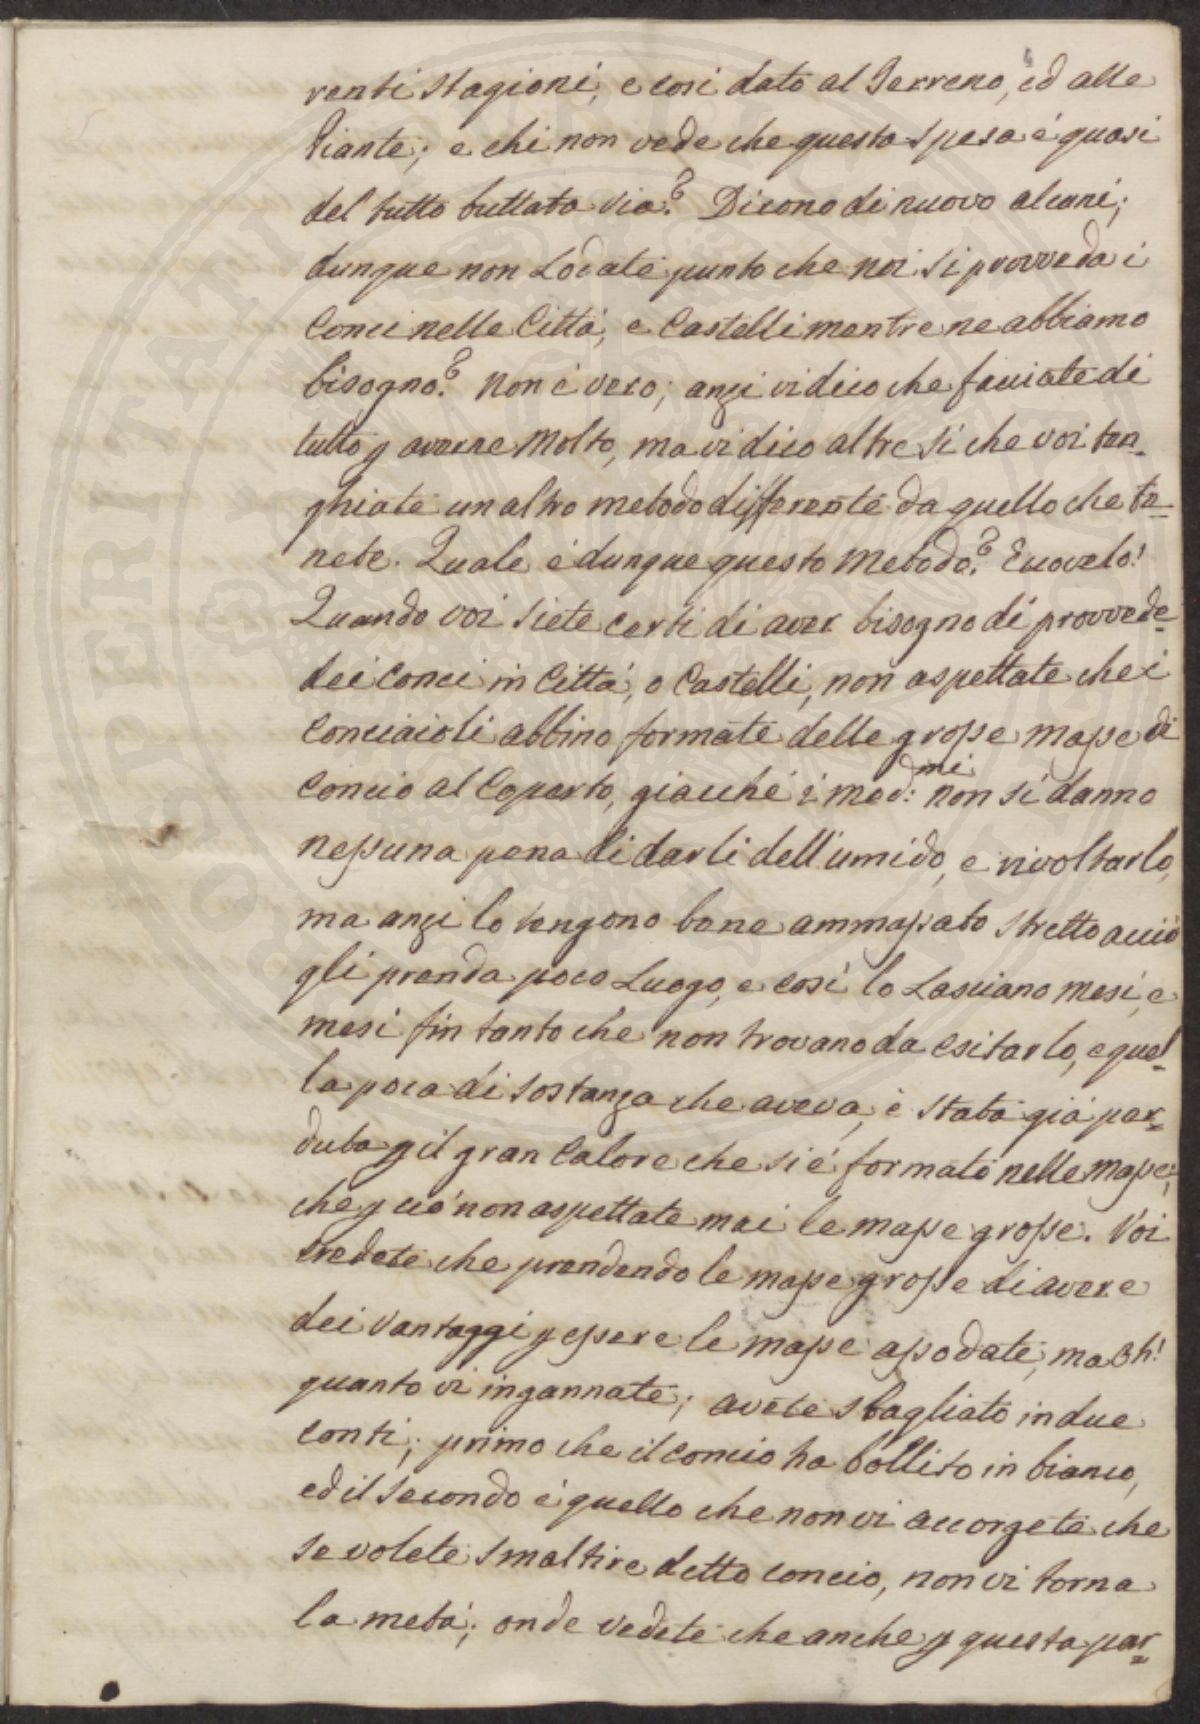 renti Stagioni, e così dato al Terreno, ed alle
Piante; e chi non vede che questa spesa é quasi
del tutto buttata via? Dicono di nuovo alcuni;
dunque non Lodate punto che noi si provveda i
Conci nelle Città, e Castelli mentre ne abbiamo
bisogno? Non è vero; anzi vi dico che facciate di
tutto p averne Molto, ma vi dico altresì che voi ten=
ghiate un altro metodo differente da quello che te=
nete. Quale é dunque questo Metodo? Eccovelo!
Quando voi siete certi di aver bisogno di provvede=
dei Conci in Città, o Castelli, non aspettate che i
Conciaioli abbino formate delle grosse masse di
Concio al Coperto, giacché i med:mi non si danno
nessuna pena di darli dell'umido, e rivoltarlo,
ma anzi lo tengono bene ammassato stretto acciò
gli prenda poco Luogo, e così lo Lasciano mesi, e
mesi fin tanto che non trovano da esitarlo, e quel=
la poca di sostanza che aveva, è stata già per=
duta p il gran Calore che si é formato nelle Masse;
che p ciò non aspettate mai le masse grosse. Voi
credete che prendendo le masse grosse di avere
dei vantaggi p essere le masse assodate, ma Oh!
quanto vi ingannate; avete sbagliato in due
conti; primo che il concio ha bollito in bianco,
ed il secondo é quello che non vi accorgete che
se volete smaltire detto concio, non vi torna
la metà; onde vedete che anche p questa par=